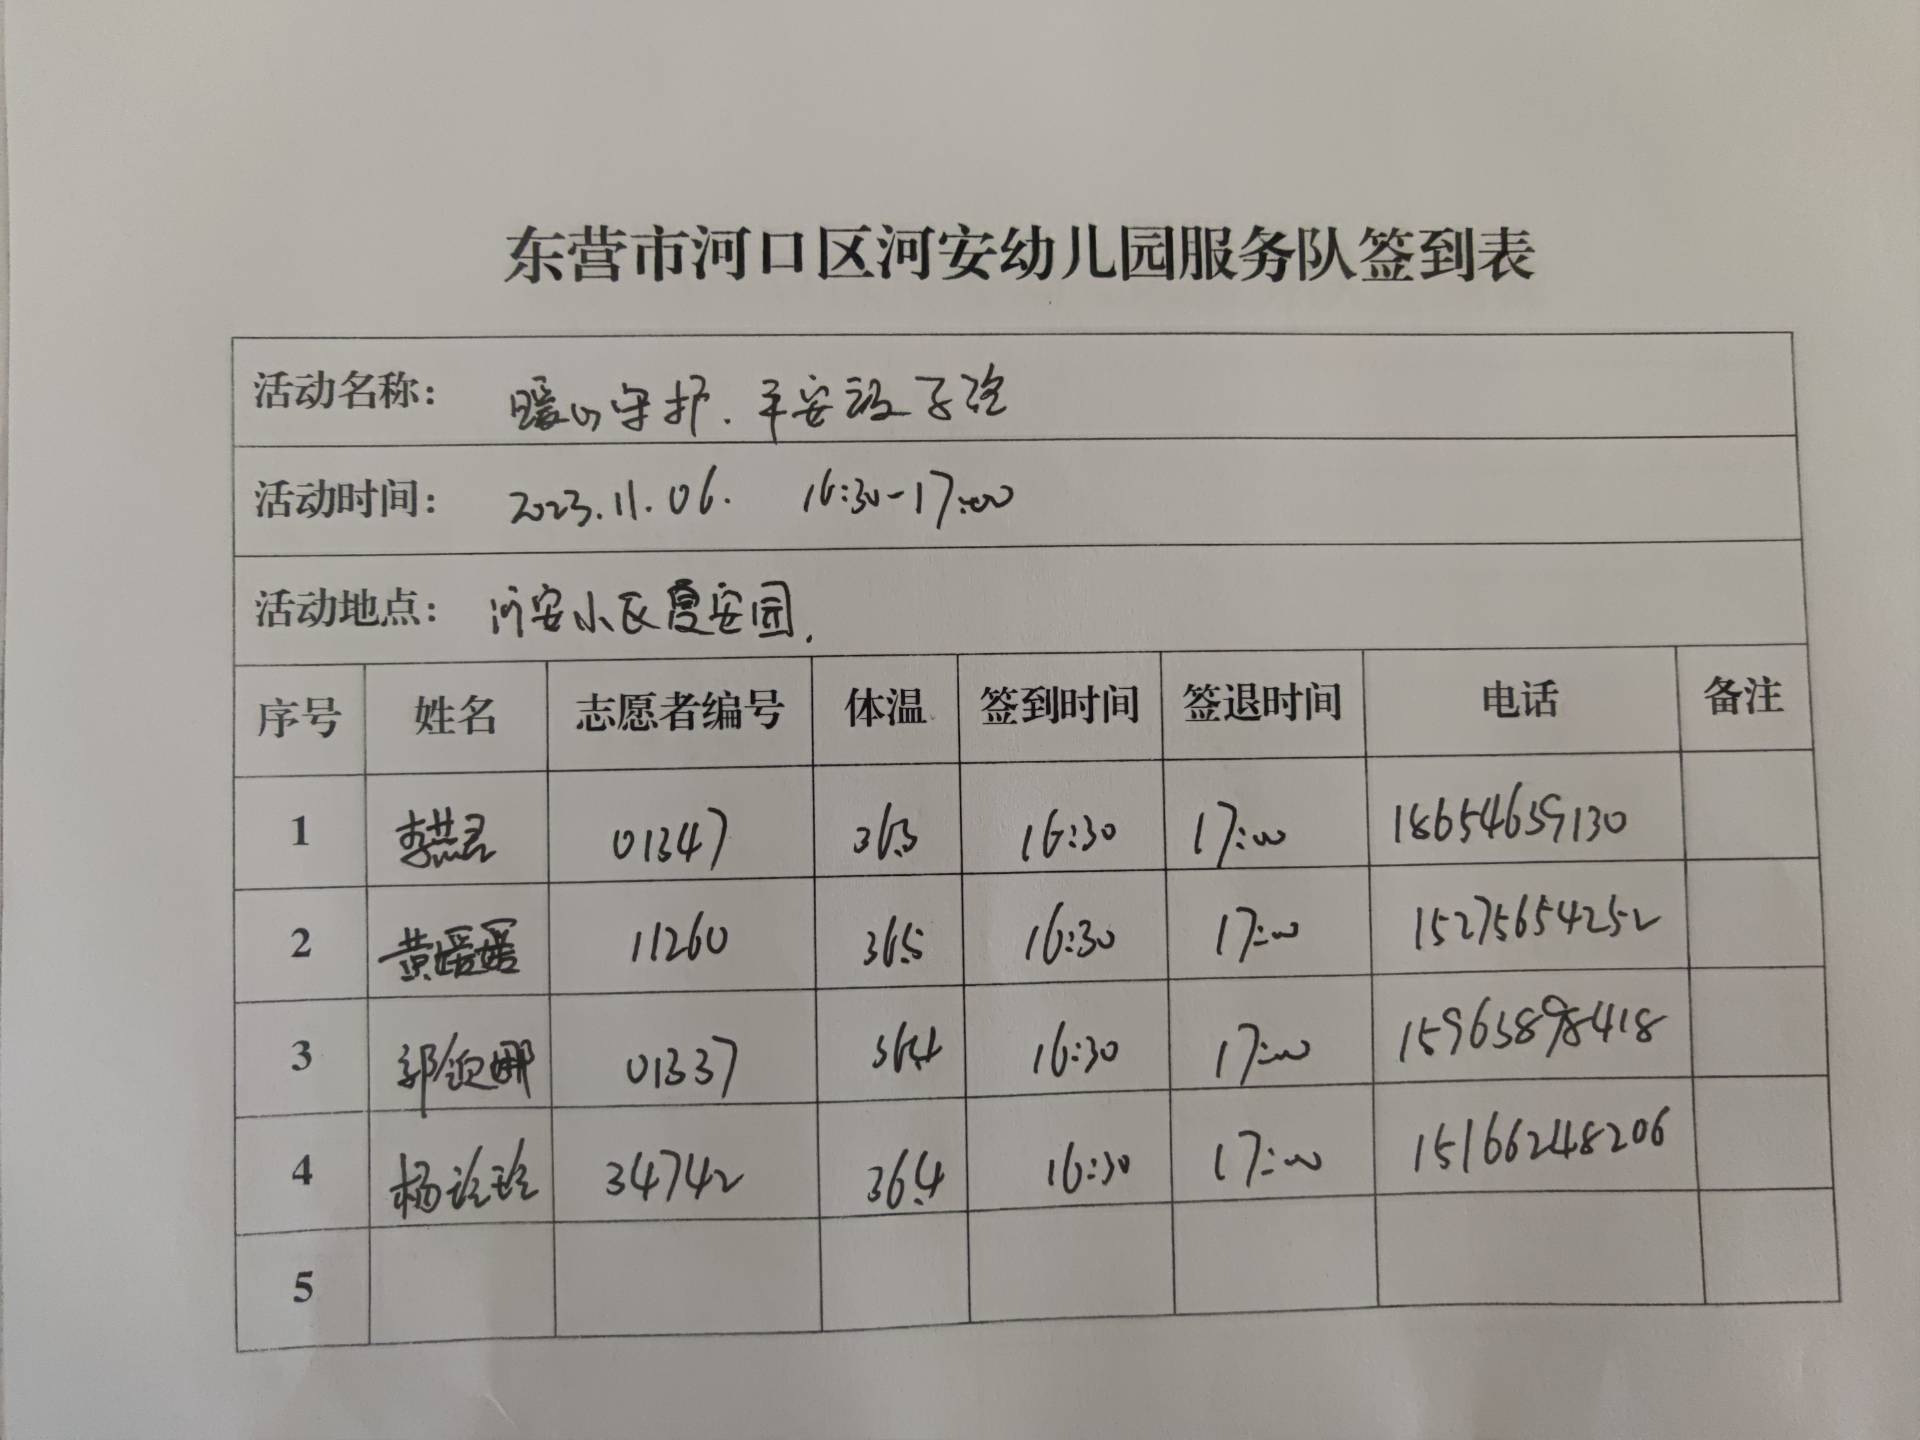 东营市河口区河安幼儿园服务队签到表
活动名称： 暖心守护.平安设子路
活动时间： 2023.11.06. 16:30-17:00
活动地点： 河安小区夏安园.
序号 姓名 志愿者编号 体温 签到时间 签退时间 电话 备注
1 李燕君 01347 36.3 16:30 17:00 18654659130
2 黄媛媛 11260 36.5 16:30 17:00 15275654252
3 郭钦娜 01337 36.4 16:30 17:00 15963898418
4 杨玲玲 34742 36.4 16:30 17:00 15166248206
5